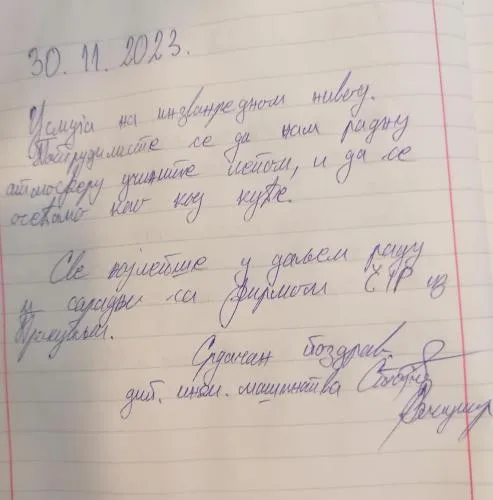 30. 11. 2023.
Услуга на изванредном нивоу.
Потрудилисте се да нам радну
атмосферу учините лепом, и да се
осећамо као код куће.
Све најлепше у даљем раду
и сарадњи са фирмом из
Срдачан поздрав
дип. инж. машинства